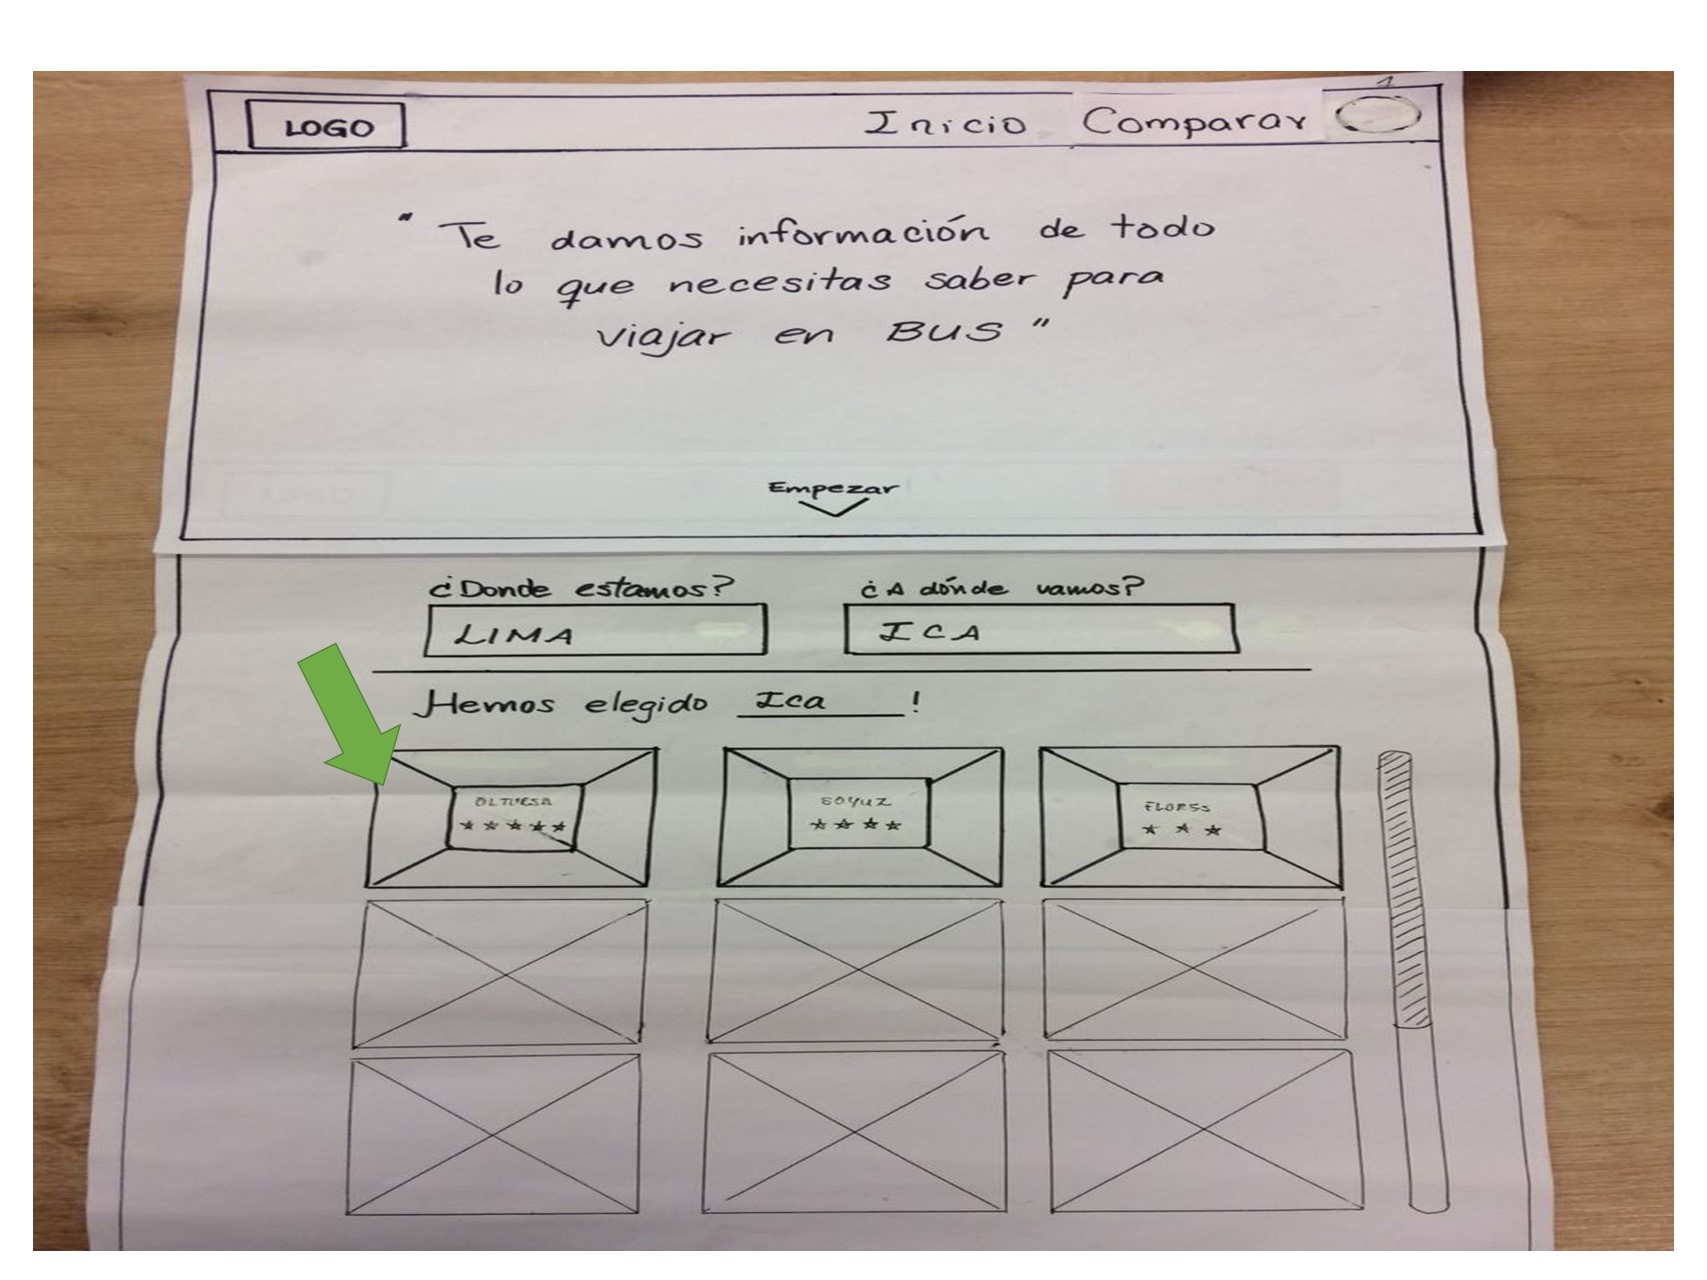 LOGO
Inicio Comparar
1
" Te damos información de todo
lo que necesitas saber para
viajar en BUS "
Empezar
¿Donde estamos? ¿A dónde vamos?
LIMA ICA
Hemos elegido Ica !
OLTURSA SOYUZ FLORES